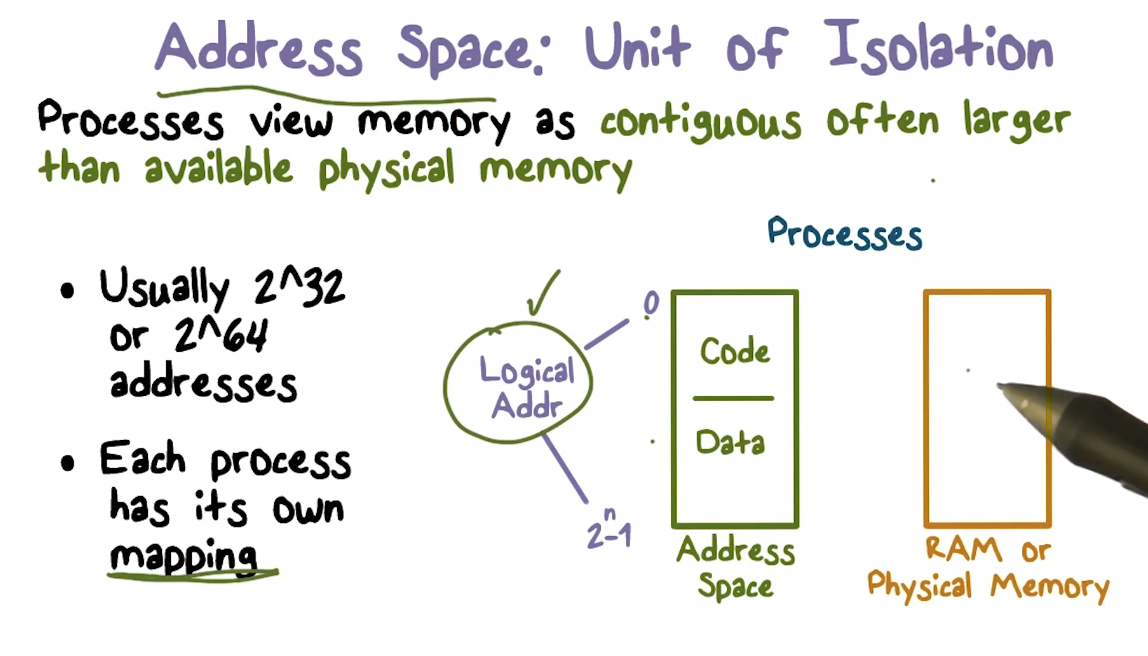 Address Space: Unit of Isolation
Processes view memory as contiguous often larger
than available physical memory
• Usually 2^32
or 2^64
addresses
• Each process
has its own
mapping
Processes
Logical
Addr
0
2^n-1
Code
Data
Address
Space
RAM or
Physical Memory